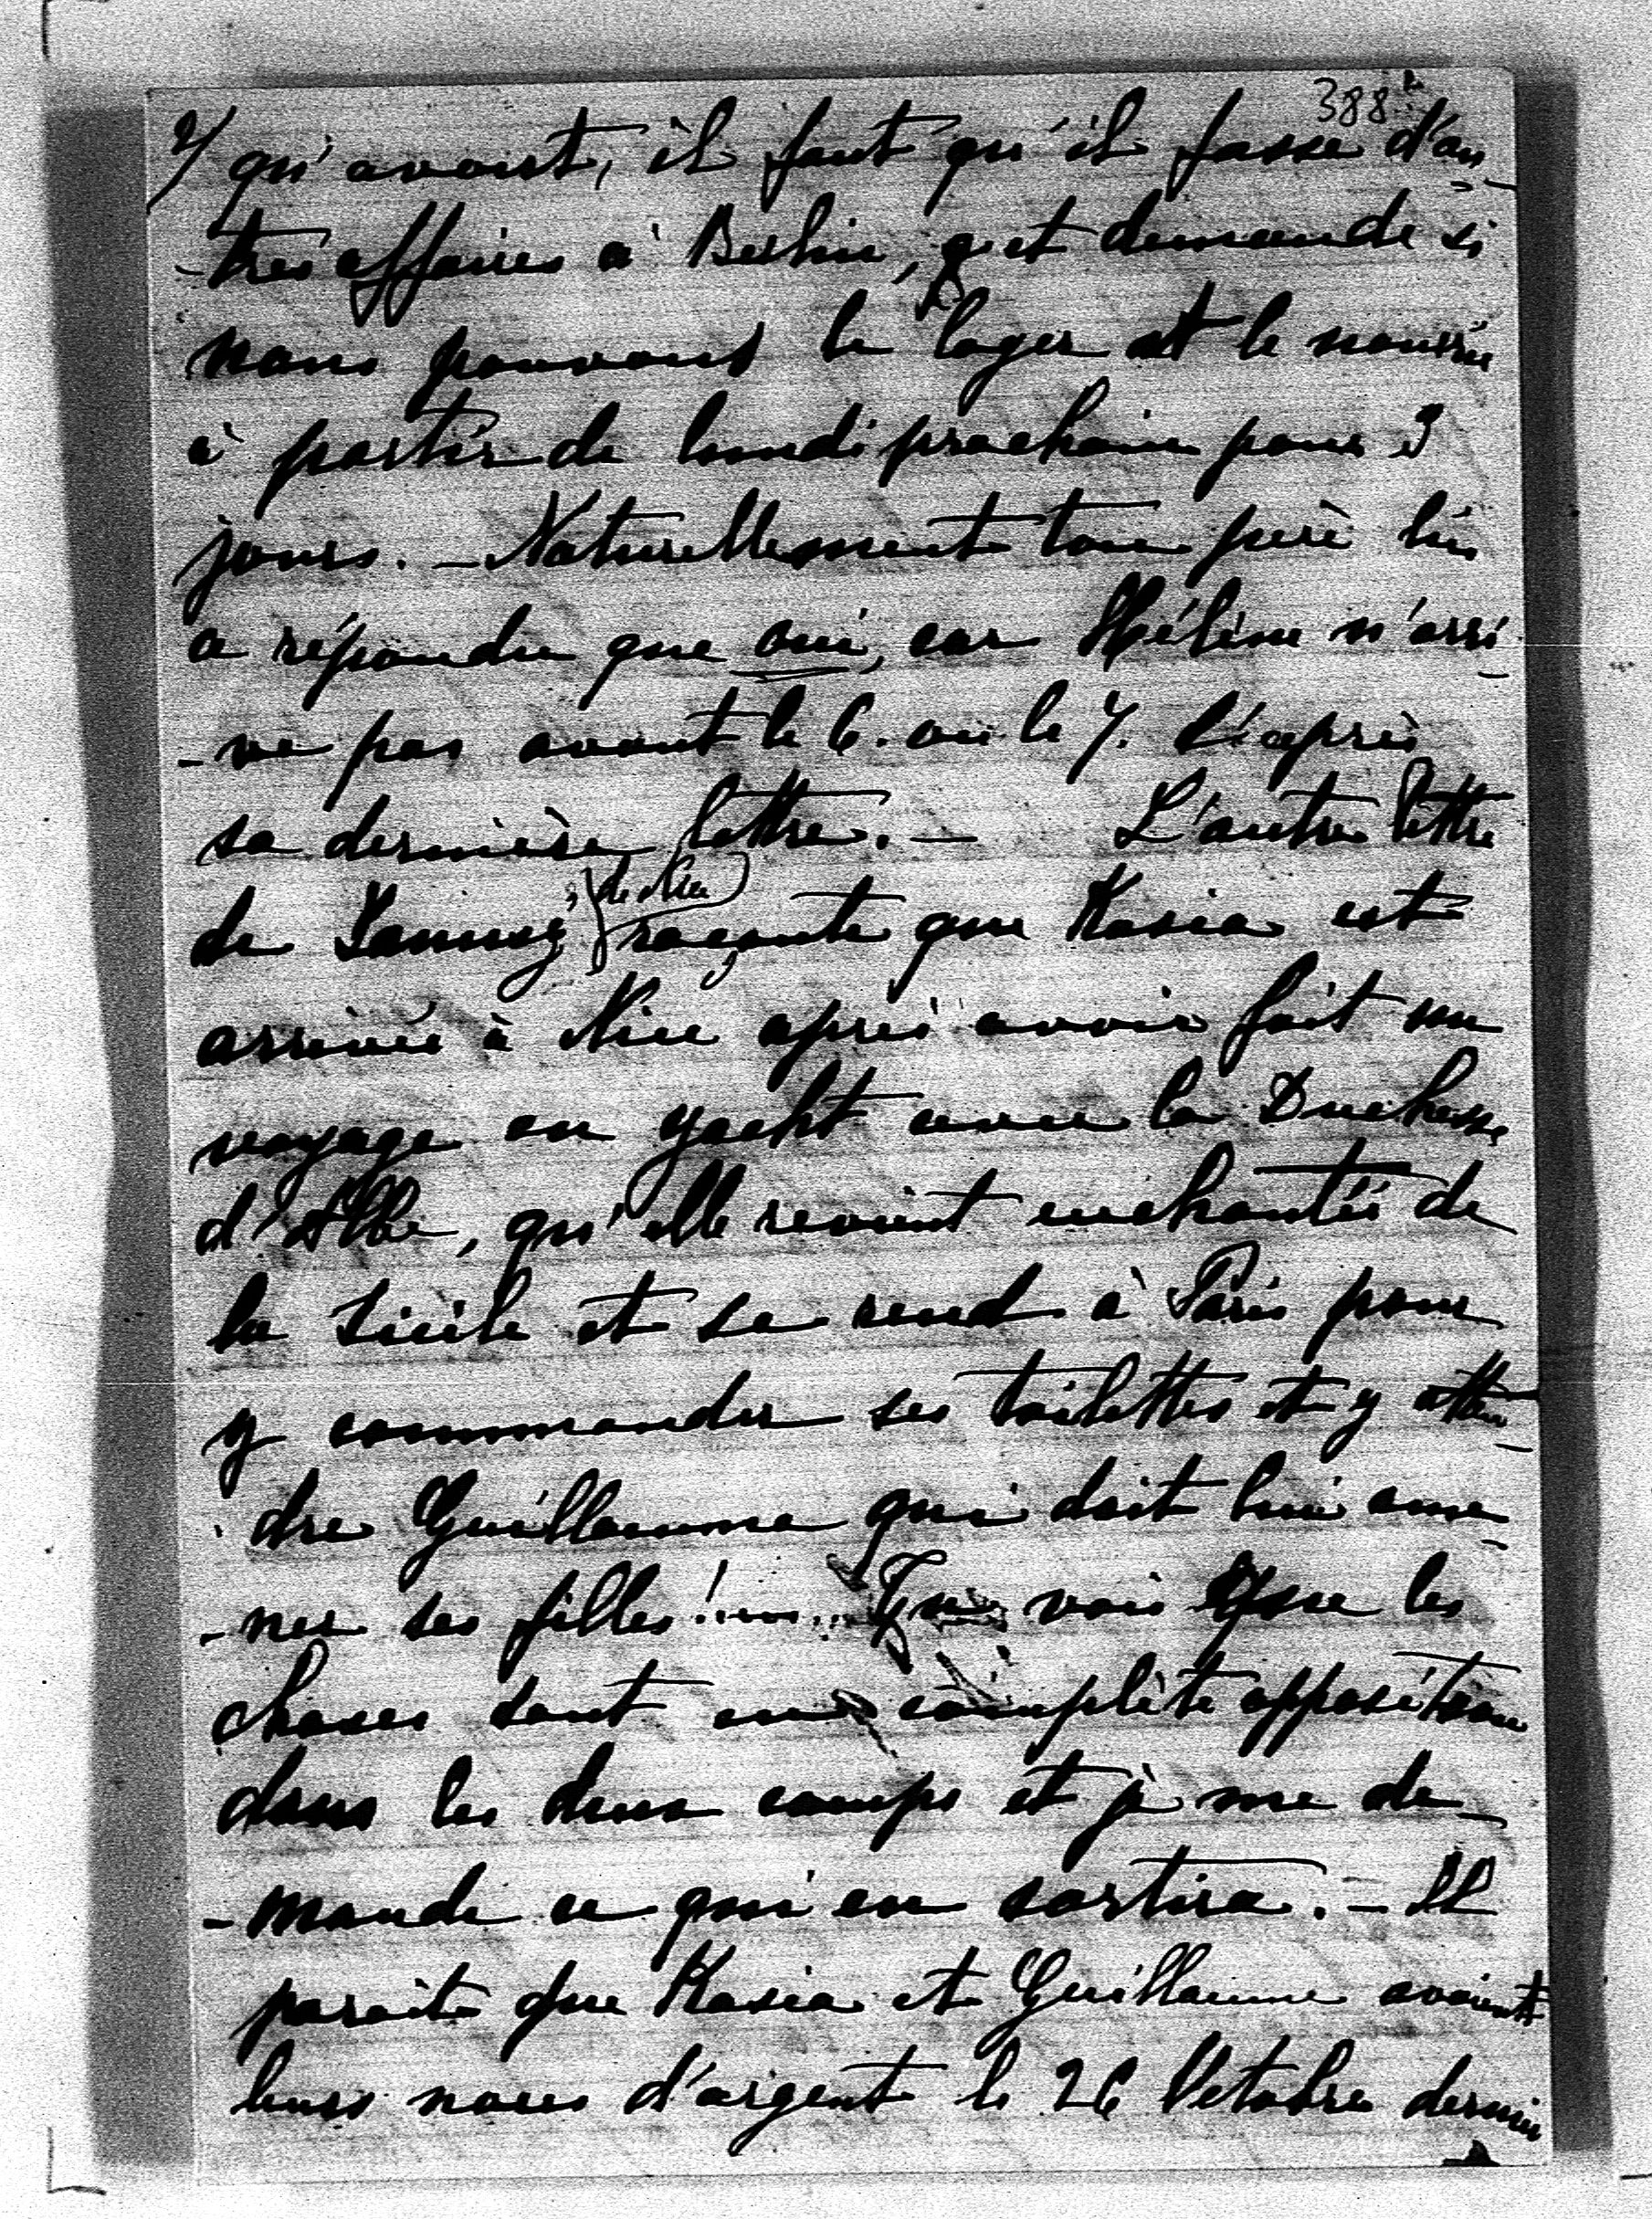 388
2/ qu'avant, il faut qu'il fasse d'au-
-tres affaires à Berlin, et demande si
nous pouvons le loger et le nourrir
à partir de lundi prochain pour 3
jours. – Naturellement ton père lui
a répondu que oui, car Hélène n'arri-
-ve pas avant le 6. ou le 7. d'après
sa dernière lettre. – L'autre lettre
de (de Nice)
raconte que Kasia est
arrivée à Nice après avoir fait un
voyage en yacht avec la Duchesse
d'Albe, qu'elle revient enchantée de
la Sicile et se rend à Paris pour
y commander ses toilettes et y atten-
dre Guillaume qui doit lui ame-
-ner ses filles!..... Tu vois que les
choses sont en complète opposition
dans les deux camps et je me de-
-mande ce qui en sortira. – Il
parait que Kasia et Guillaume avaient
leurs noces d'argent le 26 Octobre dernier